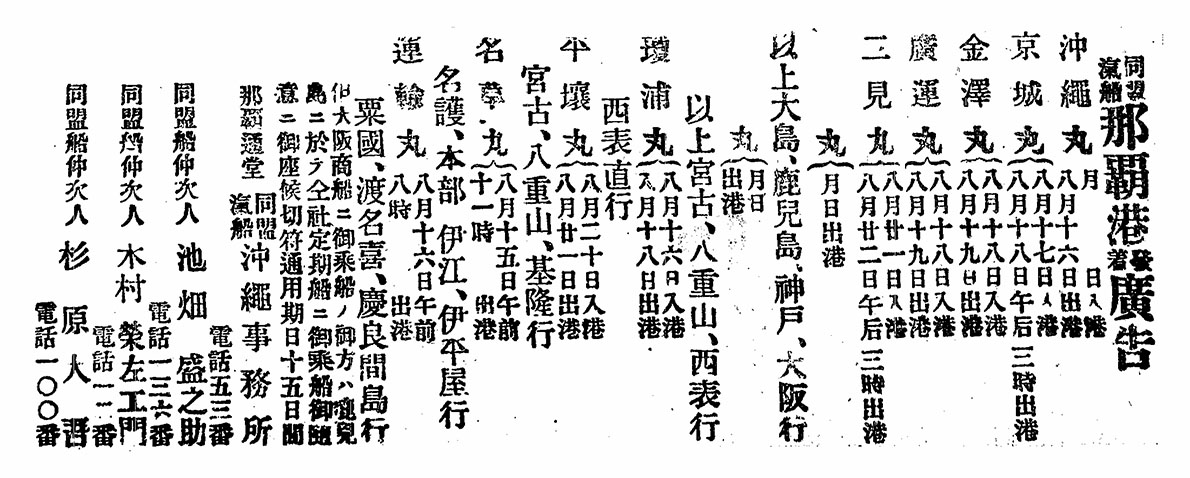 同盟汽船那覇港發着廣告
沖繩丸 月 日入港
八月十六日出港
京城丸 八月十七日入港
八月十八日午后三時出港
金澤丸 八月十八日入港
八月十九日出港
廣運丸 八月十八日入港
八月十九日出港
二見丸 八月廿一日入港
八月廿二日午后三時出港
丸 月日出港
以上大島、鹿兒島、神戸、大阪行
丸 月日
出港
以上宮古、八重山、西表行
西表直行
瓊浦丸 八月十六日入港
八月十八日出港
平壤丸 八月二十日入港
八月廿一日出港
宮古、八重山、基隆行
名草丸 八月十五日午前
十一時 出港
名護、本部、伊江、伊平屋行
運輸丸 八月十六日午前
八時 出港
粟國、渡名喜、慶良間島行
但大阪商船ニ御乘船ノ御方ハ鹿兒
島ニ於テ仝社定期船ニ御乘船御隨
意ニ御座候切符通用期日十五日間
那覇通堂 同盟汽船 沖繩事務所
電話五三番
同盟船仲次人 池畑盛之助
電話一三六番
同盟船仲次人 木村榮左工門
電話一一番
同盟船仲次人 杉原人
電話一〇〇番